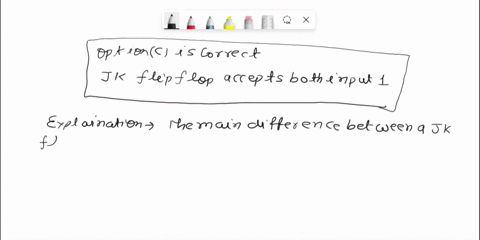 option(c) is correct
JK flip flop accepts both input 1
Explaination → The main difference between a JK
fl